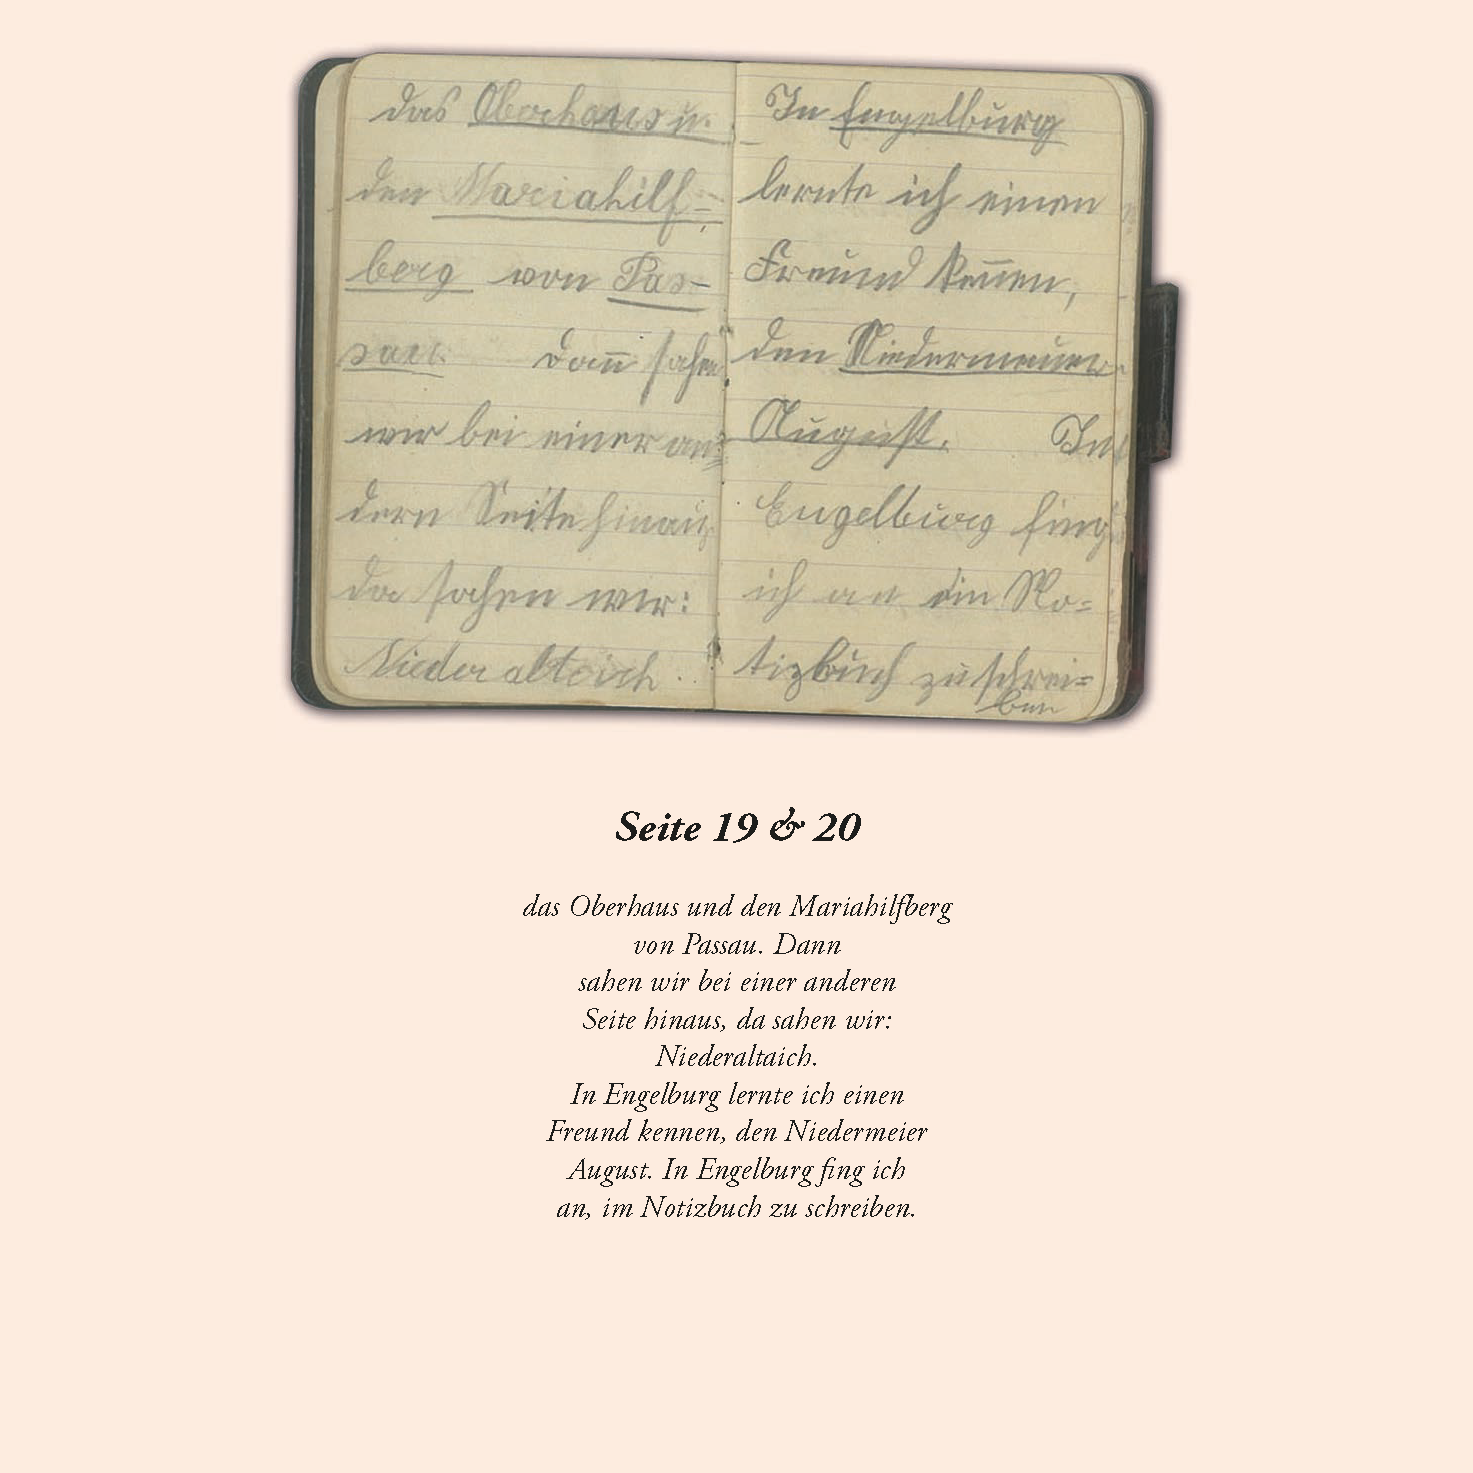 das Oberhaus u.
den Mariahilf=
berg von Pas-
sau. Dan̄ sahen
wir bei einer an=
dern Seite hinaus
da sahen wir:
Niederalteich.
In Engelburg
lernte ich einen
Freund ken̄en,
den Niedermeier
August. In
Engelburg fing
ich an ein No=
tizbuch zu schrei=
ben
Seite 19 & 20
das Oberhaus und den Mariahilfberg
von Passau. Dann
sahen wir bei einer anderen
Seite hinaus, da sahen wir:
Niederaltaich.
In Engelburg lernte ich einen
Freund kennen, den Niedermeier
August. In Engelburg fing ich
an, im Notizbuch zu schreiben.